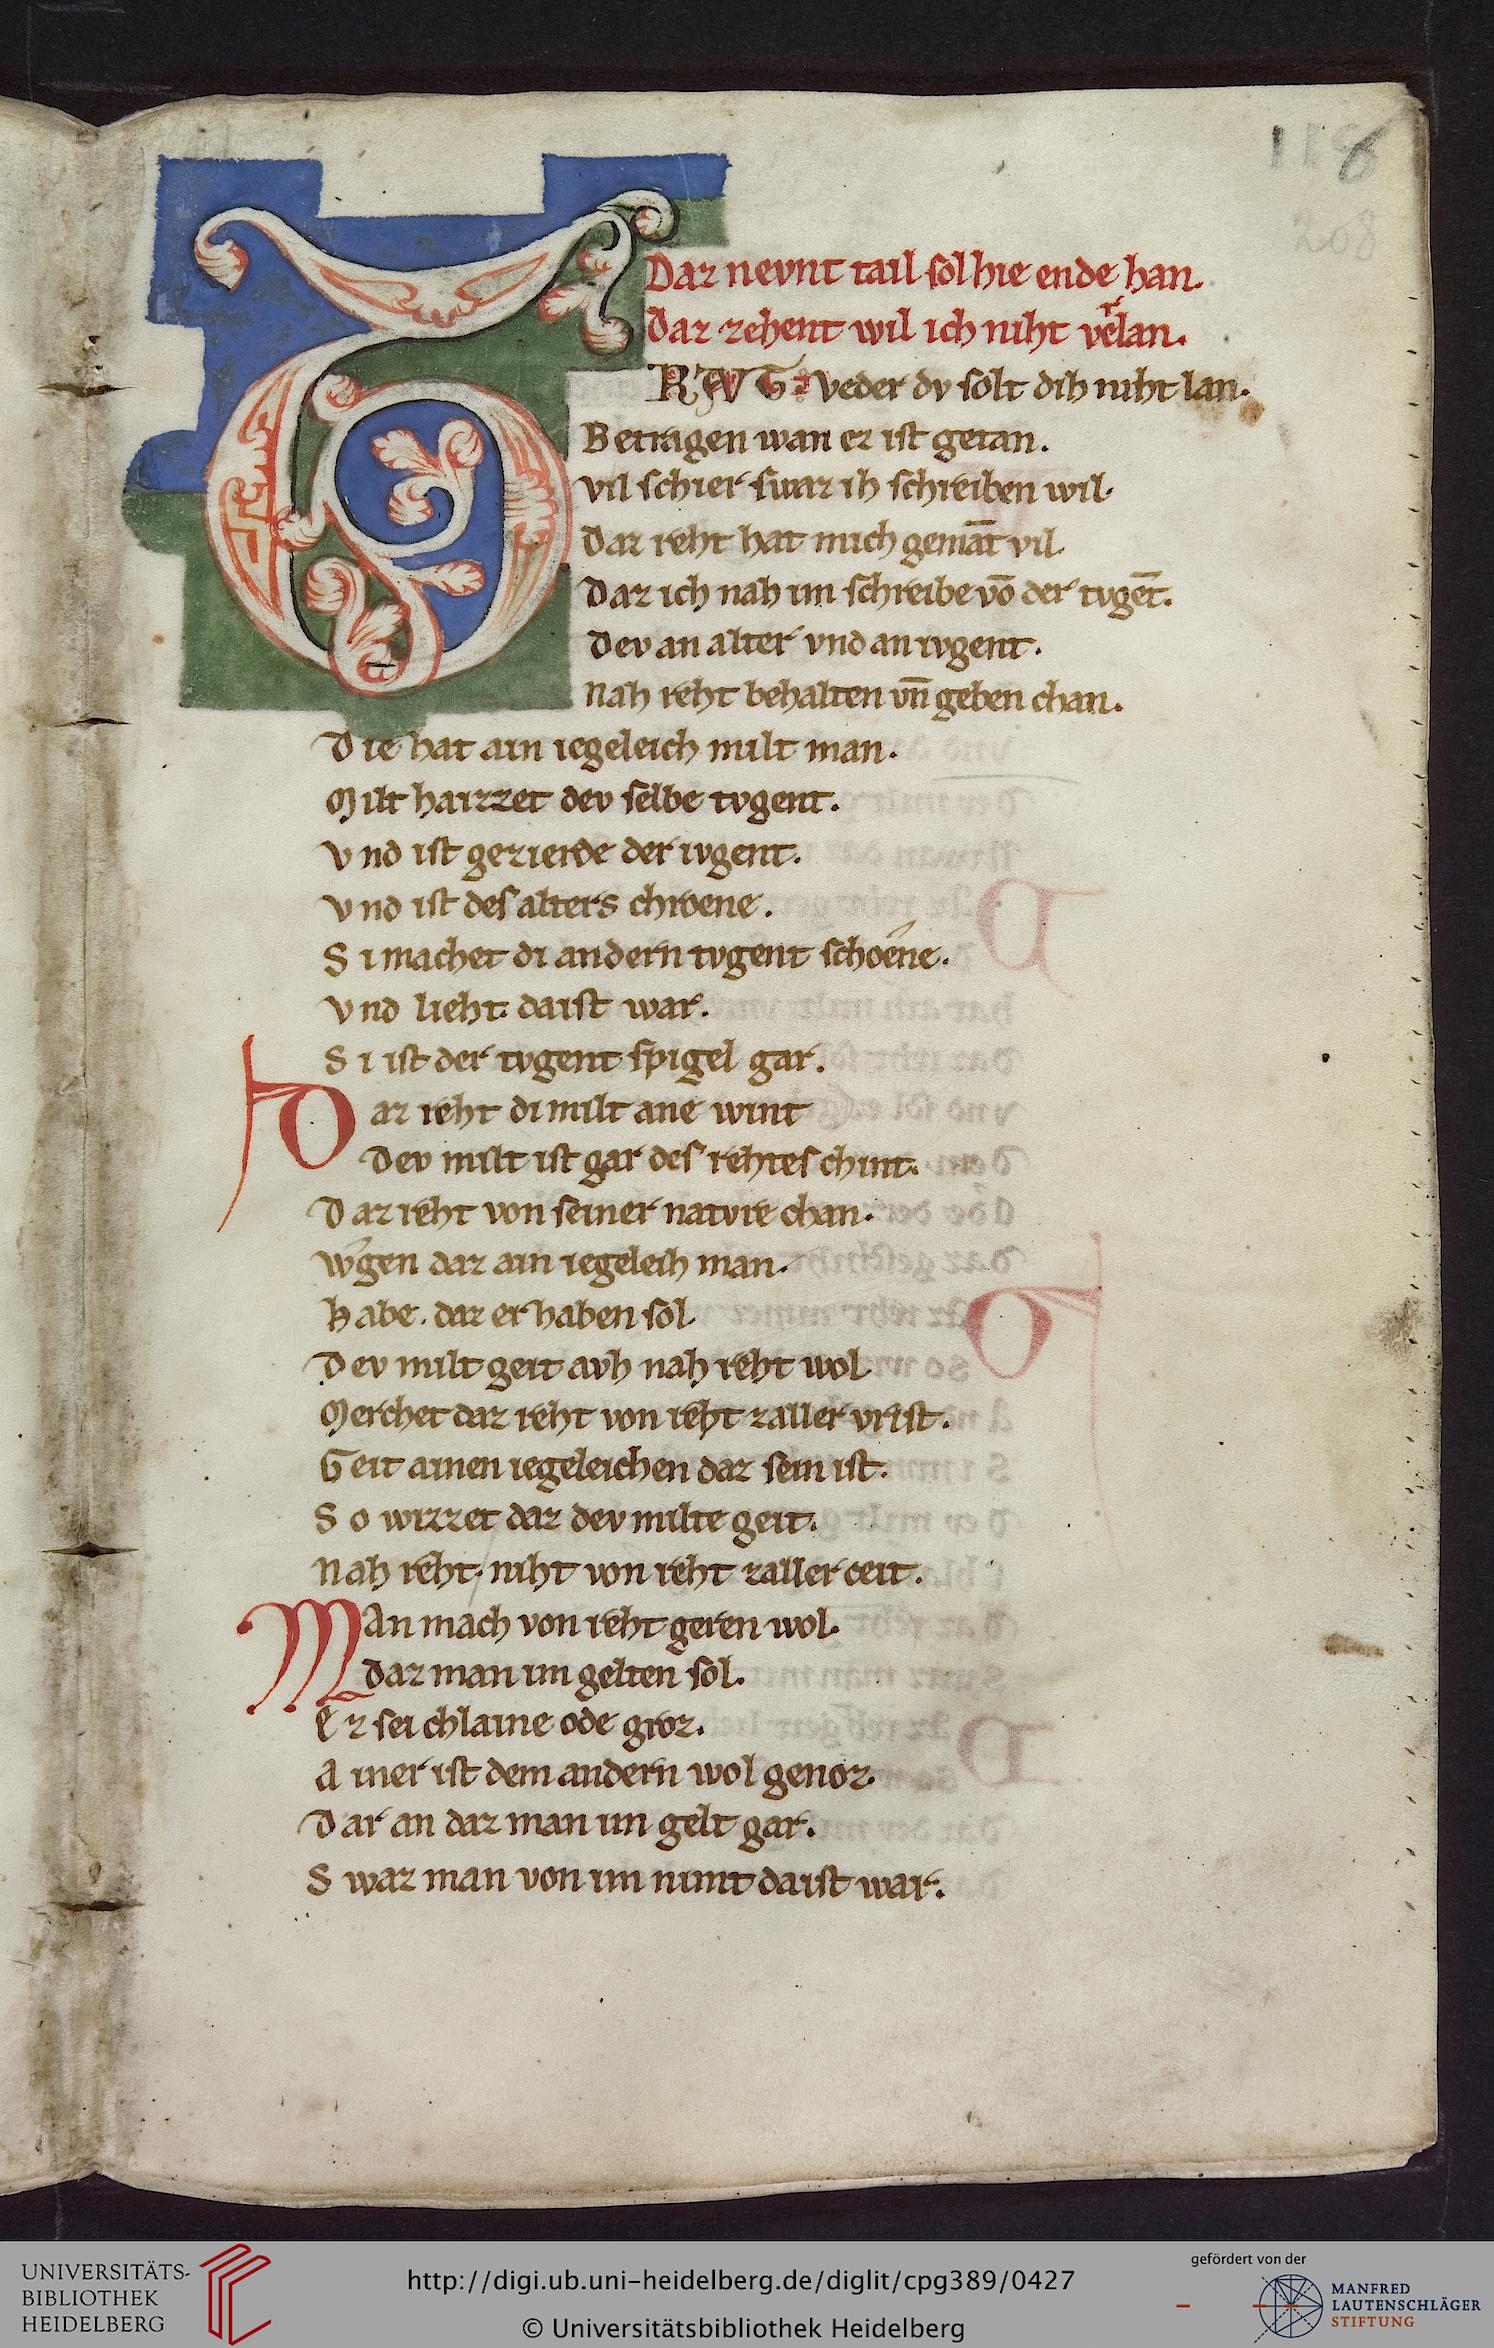 118
208
Daz nevnt tail sol hie ende han.
Daz zehent wil ich niht v̓lan.
TRAG: veder dv solt dih niht lan.
Betragen wan ez ist getan.
vil schier swaz ih schreiben wil.
Daz reht hat mich gemāt vil.
Daz ich nah im schreibe vō der tvgēt.
Dev an alter vnd an ivgent.
Nah reht behalten vn̄ geben chan.
Die hat ain iegeleich milt man.
Milt haizzet dev selbe tvgent.
Vnd ist gezierde der ivgent.
Vnd ist des alters chroene.
Si machet di andern tvgent schoene.
Vnd lieht. daist war.
Si ist der tvgent spigel gar.
Daz reht di milt ane wint
Dev milt ist gar des rehtes chint.
Daz reht von seiner natvre chan.
wͤgen daz ain iegeleih man.
Habe. daz er haben sol.
Dev milt geit avh nah reht wol.
Merchet daz reht von reht zaller vrist.
Geit ainen iegeleichen daz sein ist.
So wizzet daz dev milte geit.
Nah reht. niht von reht zaller ceit.
MAn mach von reht geren wol.
daz man im gelten sol.
Ez sei chlaine ode groz.
Ainer ist dem andern wol genoz.
Dar an daz man im gelt gar.
Swaz man von im nimt daist war.
UNIVERSITÄTS-
BIBLIOTHEK
HEIDELBERG
http://digi.ub.uni-heidelberg.de/diglit/cpg389/0427
© Universitätsbibliothek Heidelberg
gefördert von der
MANFRED
LAUTENSCHLÄGER
STIFTUNG